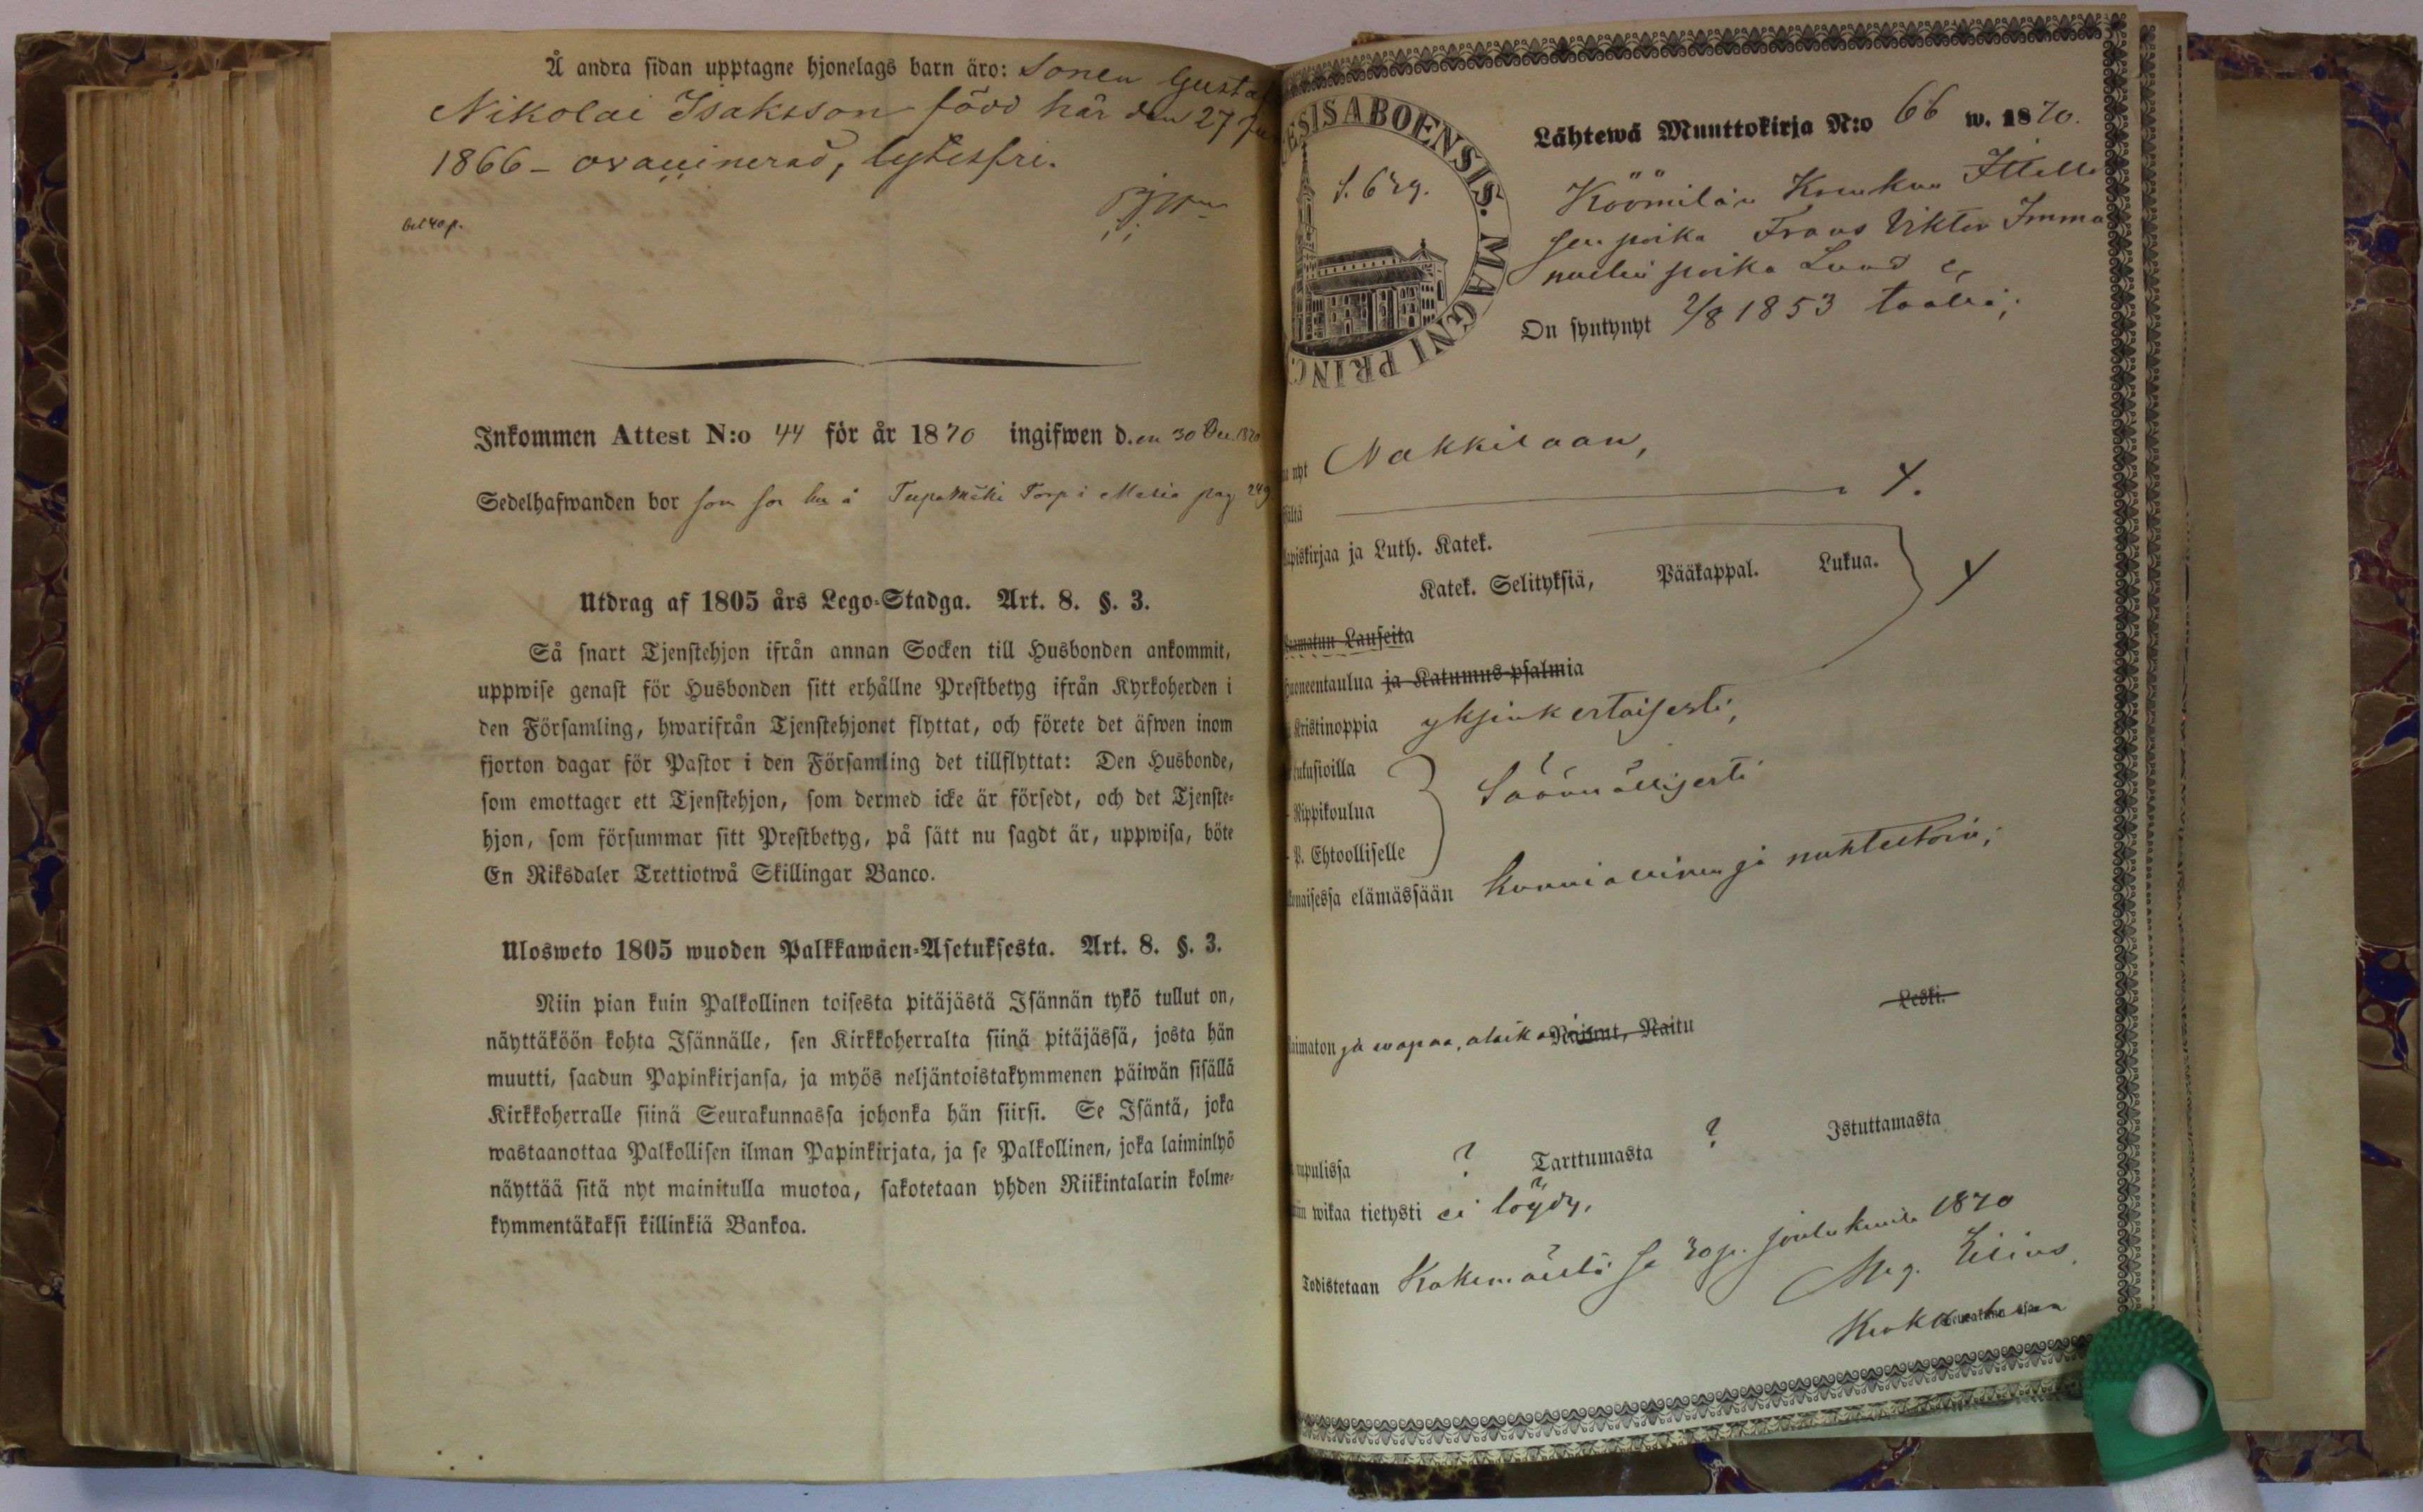 Å andra sidan upptagne hjonelags barn äro: Sonen Gustaf
Nikolai Isaksson född här den 27
1866 – ovaccinerad, lytesfri.
bet 40 p.
Inkommen Attest N:o 44 för år 1870 ingifwen d. en 30 Dec. 1870
Sedelhafwanden bor som å Torp i pag 249
Utdrag af 1805 års Lego-Stadga. Art. 8. §. 3.
Så snart Tjenstehjon ifrån annan Socken till Husbonden ankommit,
uppwise genast för Husbonden sitt erhållne Prestbetyg ifrån Kyrkoherden i
den Församling, hwarifrån Tjenstehjonet flyttat, och förete det äfwen inom
fjorton dagar för Pastor i den Församling det tillflyttat: Den Husbonde,
som emottager ett Tjenstehjon, som dermed icke är försedt, och det Tjenste-
hjon, som försummar sitt Prestbetyg, på sätt nu sagdt är, uppwisa, böte
En Riksdaler Trettiotwå Skillingar Banco.
Ulosweto 1805 wuoden Palkkawäen-Asetuksesta. Art. 8. §. 3.
Niin pian kuin Palkollinen toisesta pitäjästä Isännän tykö tullut on,
näyttäköön kohta Isännälle, sen Kirkkoherralta siinä pitäjässä, josta hän
muutti, saadun Papinkirjansa, ja myös neljäntoistakymmenen päiwän sisällä
Kirkkoherralle siinä Seurakunnassa johonka hän siirsi. Se Isäntä, joka
wastaanottaa Palkollisen ilman Papinkirjata, ja se Palkollinen, joka laiminlyö
näyttää sitä nyt mainitulla muotoa, sakotetaan yhden Riikintalarin kolme-
kymmentäkaksi killinkiä Bankoa.
ESIS ABOENSIS. MAGNI PRINC
S. 629.
Lähtewä Muuttokirja N:o 66 w. 1870.
Köömilän
poika Frans Viktor Imma
nuelin poika Lund
On syntynyt 2/8 1853 täällä;
nyt Nakkilaan,
ältä
apiskirjaa ja Luth. Katek.
Katek. Selityksiä, Pääkappal. Lukua.
Raamatun Lauseita
Huoneentaulua ja Katumus-psalmia
Kristinoppia yksinkertaisesti,
lukusioilla
Rippikoulua Säännöllisesti
P. Ehtoolliselle
naisessa elämässään Kunniallinen ja nuhteetoin;
Leski.
Naimaton ja wapaa, Naitu
rupulissa ? Tarttumasta ? Istuttamasta
wikaa tietysti ei löydy,
Todistetaan Kokemäellä 30 p. joulukuuta 1870